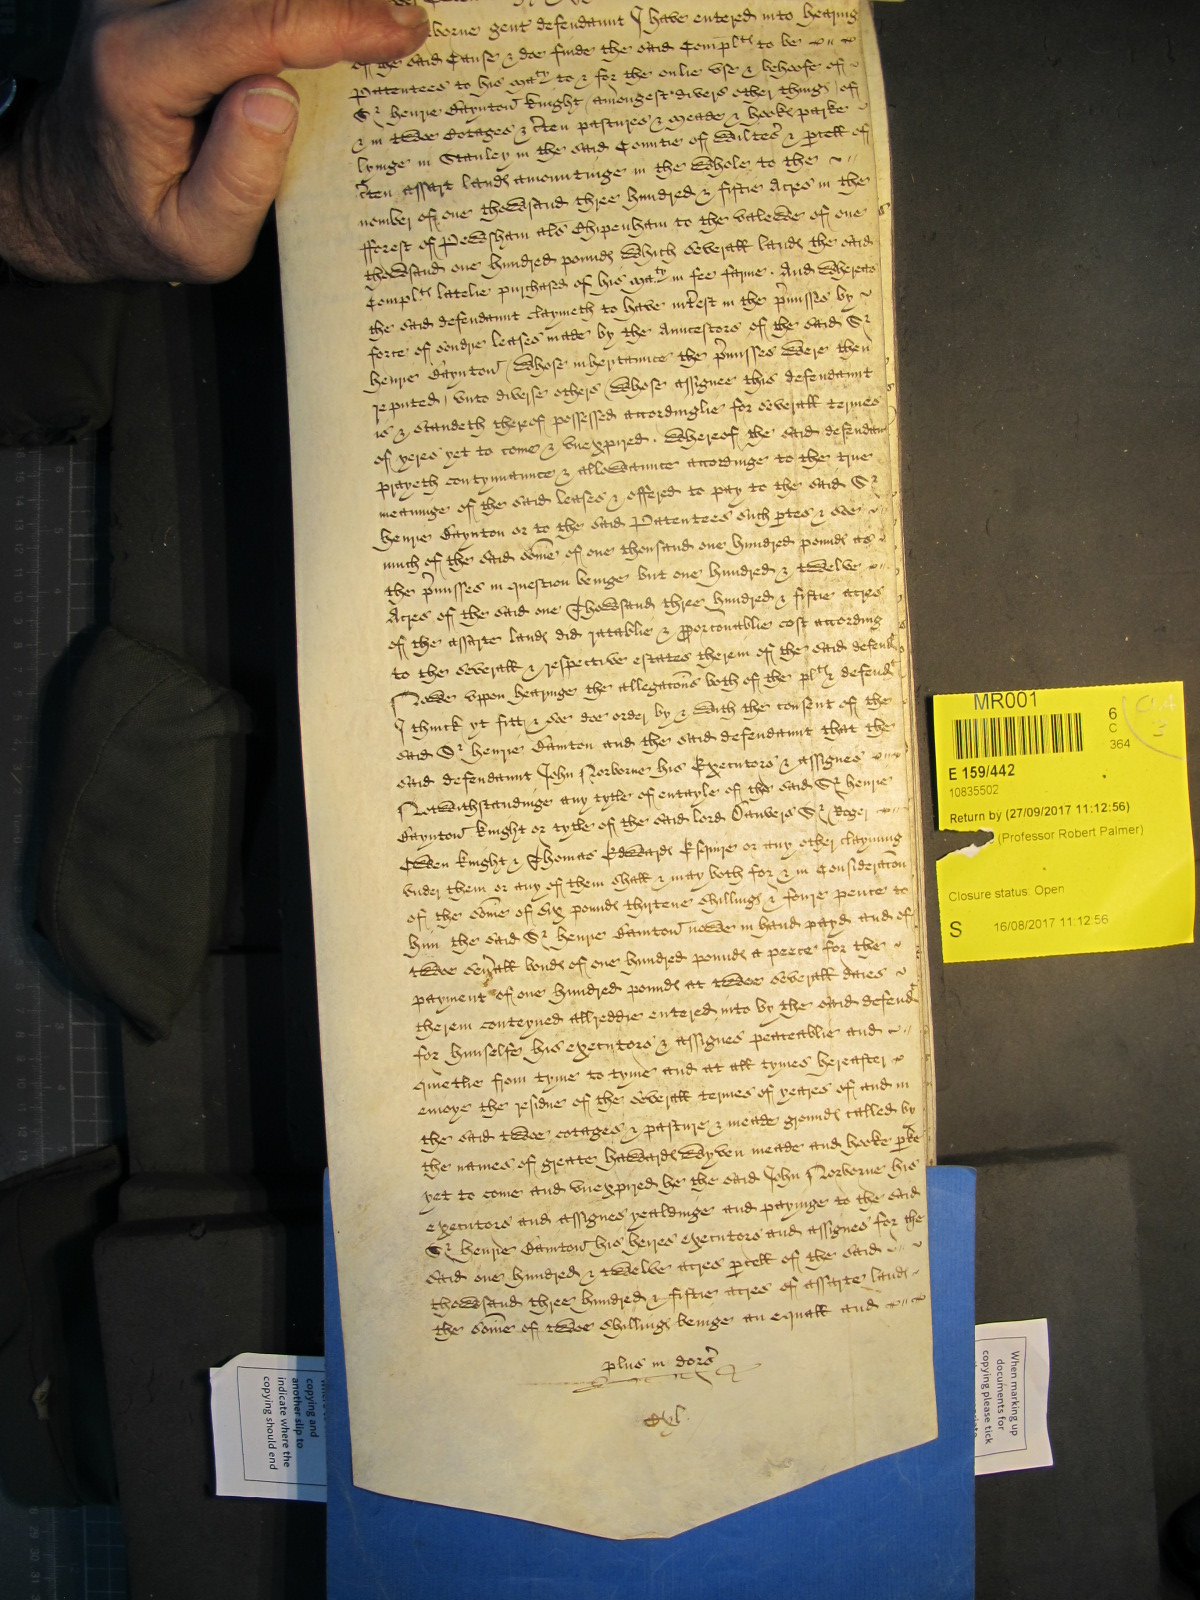 borne gent defendaunt I have entered into hearing
of the said Cause & doe finde the said Complts to be
Patentees to his maty to & for the onlie use & behoofe of
Sr henrie Baynton knight amongest divers other things of
& in twoe Cotages & cten pastures & meade & hooke parke
lyinge in Stanley in the said Countie of Wiltes & pcell of
cten assart lands amountinge in the whole to the
nomber of one thowsand three hundred & fiftie Acres in the
fforest of Pewsham als Chipenham to the valewe of one
thowsand one hundred pounds which severall lands the said
Complts latelie purchased of his maty in fee farme. And whereas
the said defendaunt claymeth to have intest in the pmisses by
force of sondrie leases made by the Auncestors of the said Sr
henrie Baynton (whose inheritaunce the pmisses were then
reputed) unto diverse others (whose assignee this defendaunt
is & standeth thereof possessed accordinglie for severall termes
of yeres yet to come & unexpired. Whereof the said defendaunt
prayeth contynuaunce & allowaunce accordinge to the true
meaninge of the said leases & offered to pay to the said Sr
henrie Baynton or to the said Patentees such ptes & soe
much of the said some of one thousand one hundred pounds as
the pmisses in question beinge but one hundred & twelve
Acres of the said one Thowsand three hundred & fiftie acres
of the assarte lands did ratablie & pporconablie cost according
to the severall & respective estates therein of the said defendt
Nowe uppon hearinge the allegacons both of the plts & defendt
I thinck yt fitt & soe doe order by & with the consent of the
said Sr henrie Bainton and the said defendaunt that the
said defendaunt John Norborne his Executors & assignes
Notwithstandinge any tytle of entayle of the said Sr henrie
Baynton knight or tytle of the said lord Danvers Sr Roger
Owen knight & Thomas Edwards Esquire or any other clayming
under them or any of them shall & may both for & in Consideracon
of the some of six pounds thirtene shillings & foure pence to
him the said Sr henrie Bainton nowe in hand payd and of
twoe sevall bonds of one hundred pounds a peece for the
payment of one hundred pounds at twoe severall daies
therein conteyned allreddie entered into by the said defendt
for himselfe his executors & assignes peaceablie and
quietlie from tyme to tyme and at all tymes hereafter
enioye the residue of the severall termes of yeares of and in
the said twoe cotages & pasture & meade grounds called by
the names of greate hawards Wyven meade and hooke pke
yet to come and unexpired he the said John Norborne his
executors and assignes yealdinge and payinge to the said
Sr henrie Bainton his heires executors and assignes for the
said one hundred & twelve acres pcell of the said
thowsand three hundred & fiftie acres of assarte lands
the some of twoe shillings beinge an equall and
plus in dors
Cxl
MR001
6
C
364
E 159/442
10835502
Return by (27/09/2017 11:12:56)
(Professor Robert Palmer)
Closure status: Open
S 16/08/2017 11:12:56
copying and
another slip to
indicate where the
copying should end
When marking up
documents for
copying please tick